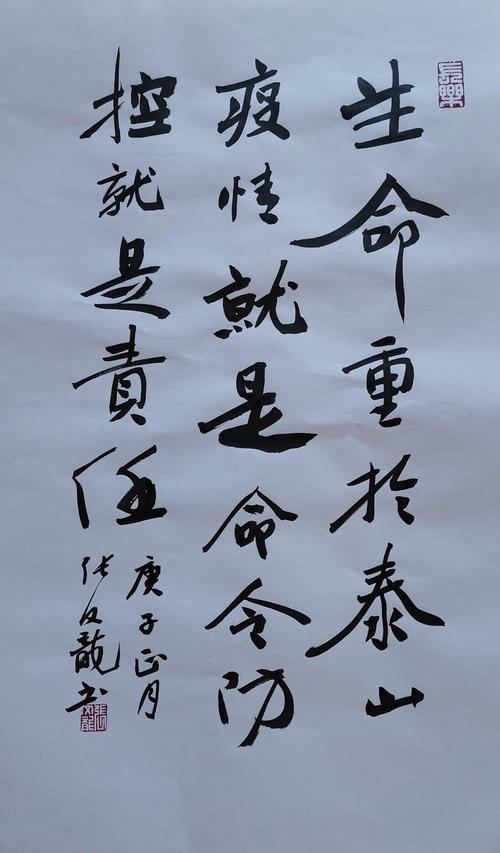 長樂
生命重於泰山
疫情就是命令防
控就是責任
庚子正月
张文龍书